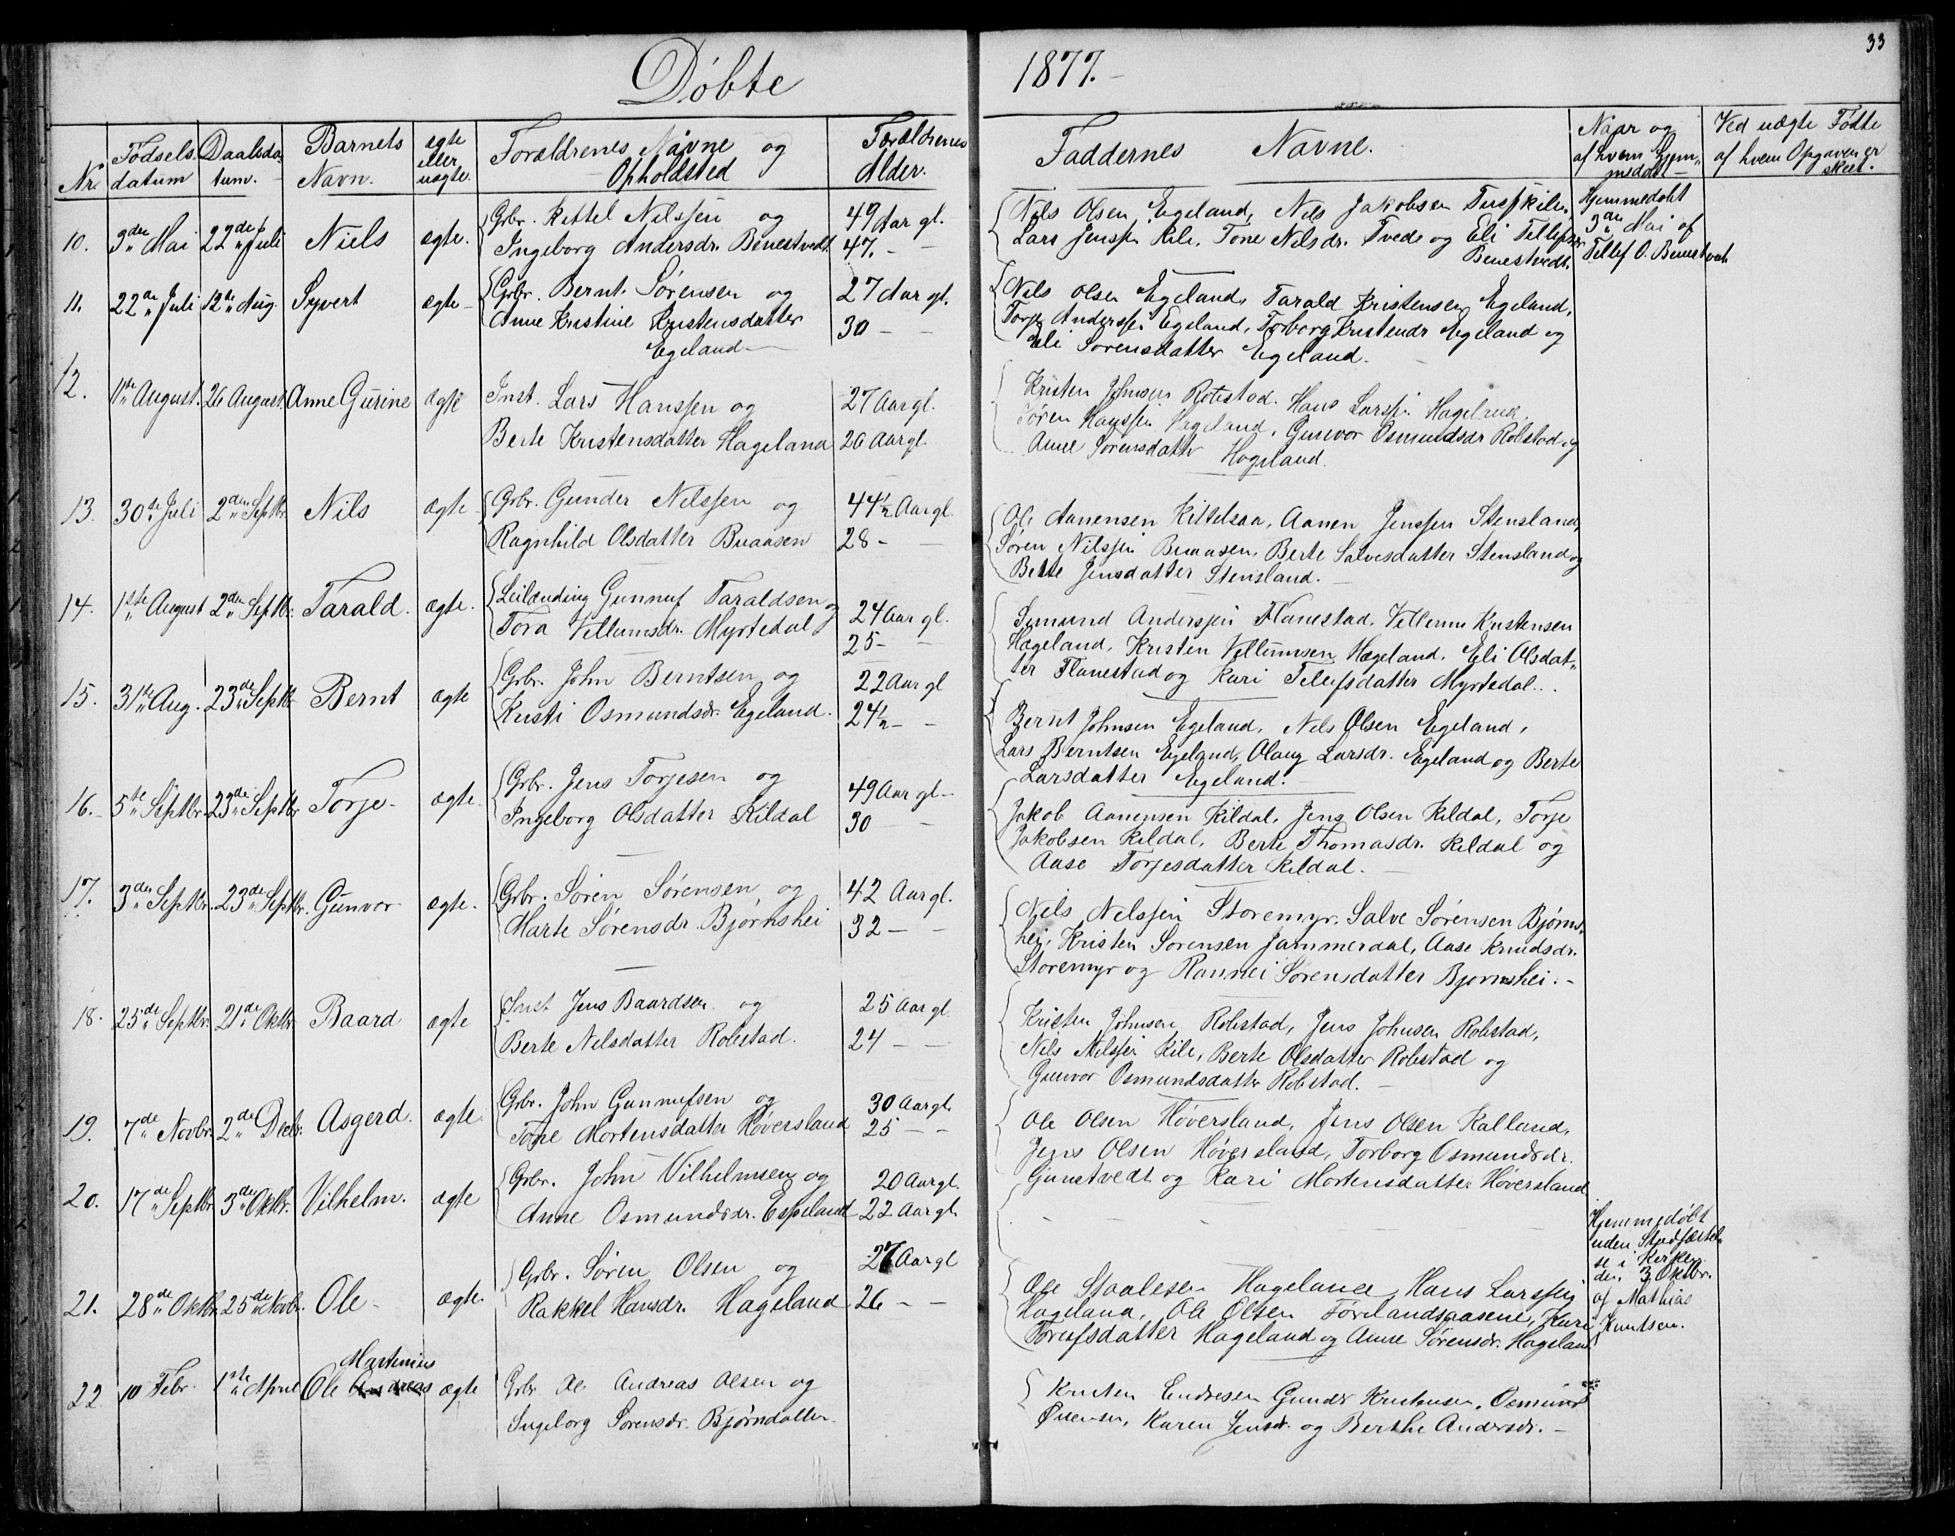 33
Døbte 1877.-
Nr. Fødsels datum Daabsda tum. Barnets Navn. ægte eller uægte. Forældrenes Navne og Opholdsted Forældrenes Alder. Faddernes Navne. Naar og af hvem Hjem msdøbt Ved uægte Fødte af hvem Opgaven er skeet.
10. 3die Mai 22de Juli Niels ægte. Grbr. Kittel Nilssen og 49 Aar gl.
Ingeborg Andersdr. Benestvedt 47. -
Nils Olsen Egeland, Nils Jakobsen
Lars Jenssen Kile, Tone Nilsdr. Tvede og Eli Tellefsdr
Benestvedt.
Hjemmedøbt
3die Mai af
Tellef O. Benestvedt
11. 22de Juli 12te Aug. Syvert ægte- Grbr. Bernt Sørensen og 27 Aar gl.
Anne Kristine Kristensdatter 30 -
Egeland
Nils Olsen Egeland, Tarald Kristensen Egeland,
Torje Anderssen Egeland, Torborg Kristensdr Egeland og
Eli Sørensdatter Egeland.
12. 11te August. 26 August. Anne Gurine ægte Inst. Lars Hanssen og 27 Aar gl.
Berte Kristensdatter Hageland 26 Aar gl.
Kristen Johnsen Robstad. Hans Larssen
Søren Hanssen Hageland, Gunvor Osmundsdr Robstad og
Anne Sørensdatter Hageland.
13. 30te Juli 2den Septbr. Nils ægte Grbr. Gunder Nilssen og 44½ Aar gl.
Ragnhild Olsdatter Buaasen 28 -
Ole Aanensen Kittelsaa, Aanen Jenssen Stensland,
Søren Nilssen Buaasen, Berte Salvesdatter Stensland og
Berte Jensdatter Stensland.
14. 1ste August 2den Septbr. Tarald. ægte. Leilænding Gunnuf Taraldsen og 24 Aar gl.
Tora Villumsdr. Myrtedal 25 -
Semund Anderssen Flanestad, Villum Kristensen
Hægeland, Kristen Villumsen Hægeland, Eli Olsdat-
ter Flanestad og Kari Tellefsdatter Myrtedal.
15. 31te Aug. 23de Septbr Bernt ægte Grbr. John Berntsen og 22 Aar gl
Kristi Osmundsdr. Egeland. 24½ -
Bernt Johnsen Egeland, Nils Olsen Egeland,
Lars Berntsen Egeland, Olaug Larsdr. Egeland og Berte
Larsdatter Egeland.
16. 5te Septbr. 23de Septbr Torje- ægte. Grbr. Jens Torjesen og 49 Aar gl-
Ingeborg Olsdatter Kildal 30 -
Jakob Aanensen Kildal, Jens Olsen Kildal, Torje
Jakobsen Kildal, Berte Thomasdr. Kildal og
Aase Torjesdatter Kildal.
17. 3die Septbr. 23de Septbr. Gunvor ægte. Grbr. Søren Sørensen og 42 Aar gl.
Marte Sørensdr Bjørnshei 32 -
Nils Nilssen Storemyr, Salve Sørensen Bjørns-
hei, Kristen Sørensen Jammerdal, Aase Knudsdr.
Storemyr og Rannei Sørensdatter Bjørnshei.-
18. 25de Septbr. 21de Oktbr. Baard ægte Inst Jens Baardsen og 25 Aar gl
Berte Nilsdatter Robstad. 24 -
Kristen Johnsen Robstad, Jens Johnsen Robstad,
Nils Nilssen Kile, Berte Olsdatter Robstad og
Gunvor Osmundsdatter Robstad.
19. 7de Novbr. 2de Decbr. Asgerd. ægte. Grbr. John Gunnufsen og 30 Aar gl.
Tone Mortensdatter Høversland 25 -
Ole Olsen Høversland, Jens Olsen Kalland,
Jens Olsen Høversland, Torborg Osmundsdr.
Gunstvedt og Kari Mortensdatter Høversland
20. 17de Septbr. 3de Oktbr. Vilhelm. ægte Grbr. John Vilhelmsen og 20 Aar gl.
Anne Osmundsdr. Espeland 22 Aar gl.
Hjemmedøbt
uden Stadfæstel
se i Kirken
den 3 Oktbr.
af Mathias
Knutsen.
21. 28de Oktbr. 25de Novbr. Ole- ægte. Grbr. Søren Olsen og 27 Aar gl
Rakkel Hansdr. Hageland 26 -
Ole Staalesen Hageland, Hans Larssen
Hageland, Ole Olsen Førelandsaasene, Kari
Torufsdatter Hageland og Anne Sørensdr. Hageland
22 10 Febr. 1ste April Ole Andreas Martinius ægte Grbr. Ole Andreas Olsen og
Ingeborg Sørensdr. Bjørndalen.
Kristen Endresen Gunder Kristensen, Osmund
Karen Jensdr. og Berthe Andersdr.-